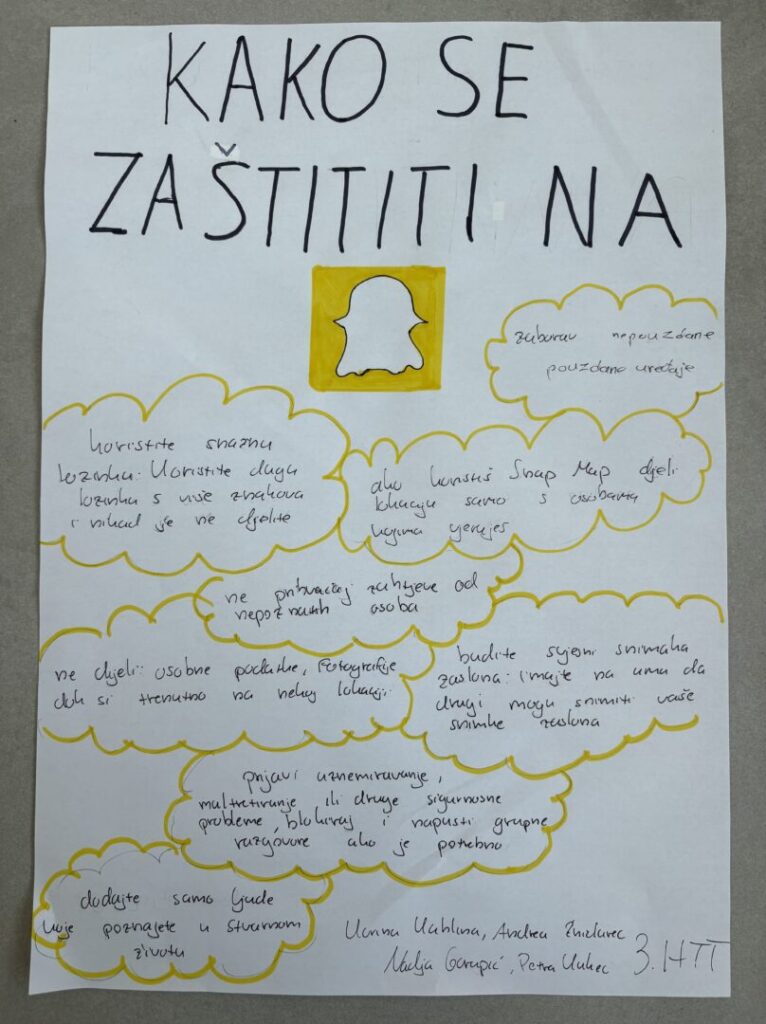 KAKO SE
ZAŠTITITI NA
zaborav nepouzdane
pouzdano uređaje
koristite snažnu
lozinku: Koristite dugu
lozinku s više znakova
i nikad je ne djelite
ako koristiš Snap Map djeli
lokaciju samo s osobama
kojima vjeruješ
ne prihvaćaj zahtjeve od
nepoznatih osoba
ne djeli: osobne podatke, fotografije
dok si trenutno na nekoj lokaciji
budite svjesni snimaka
zaslona: imajte na umu da
drugi mogu snimiti vaše
snimke zaslona
prijavi uznemiravanje,
maltretiranje ili druge sigurnosne
probleme, blokiraj i napusti grupne
razgovore ako je potrebno
dodajte samo ljude
koje poznajete u stvarnom
životu
Andrea Žnidarec
Nadja, Petra 3. HTT